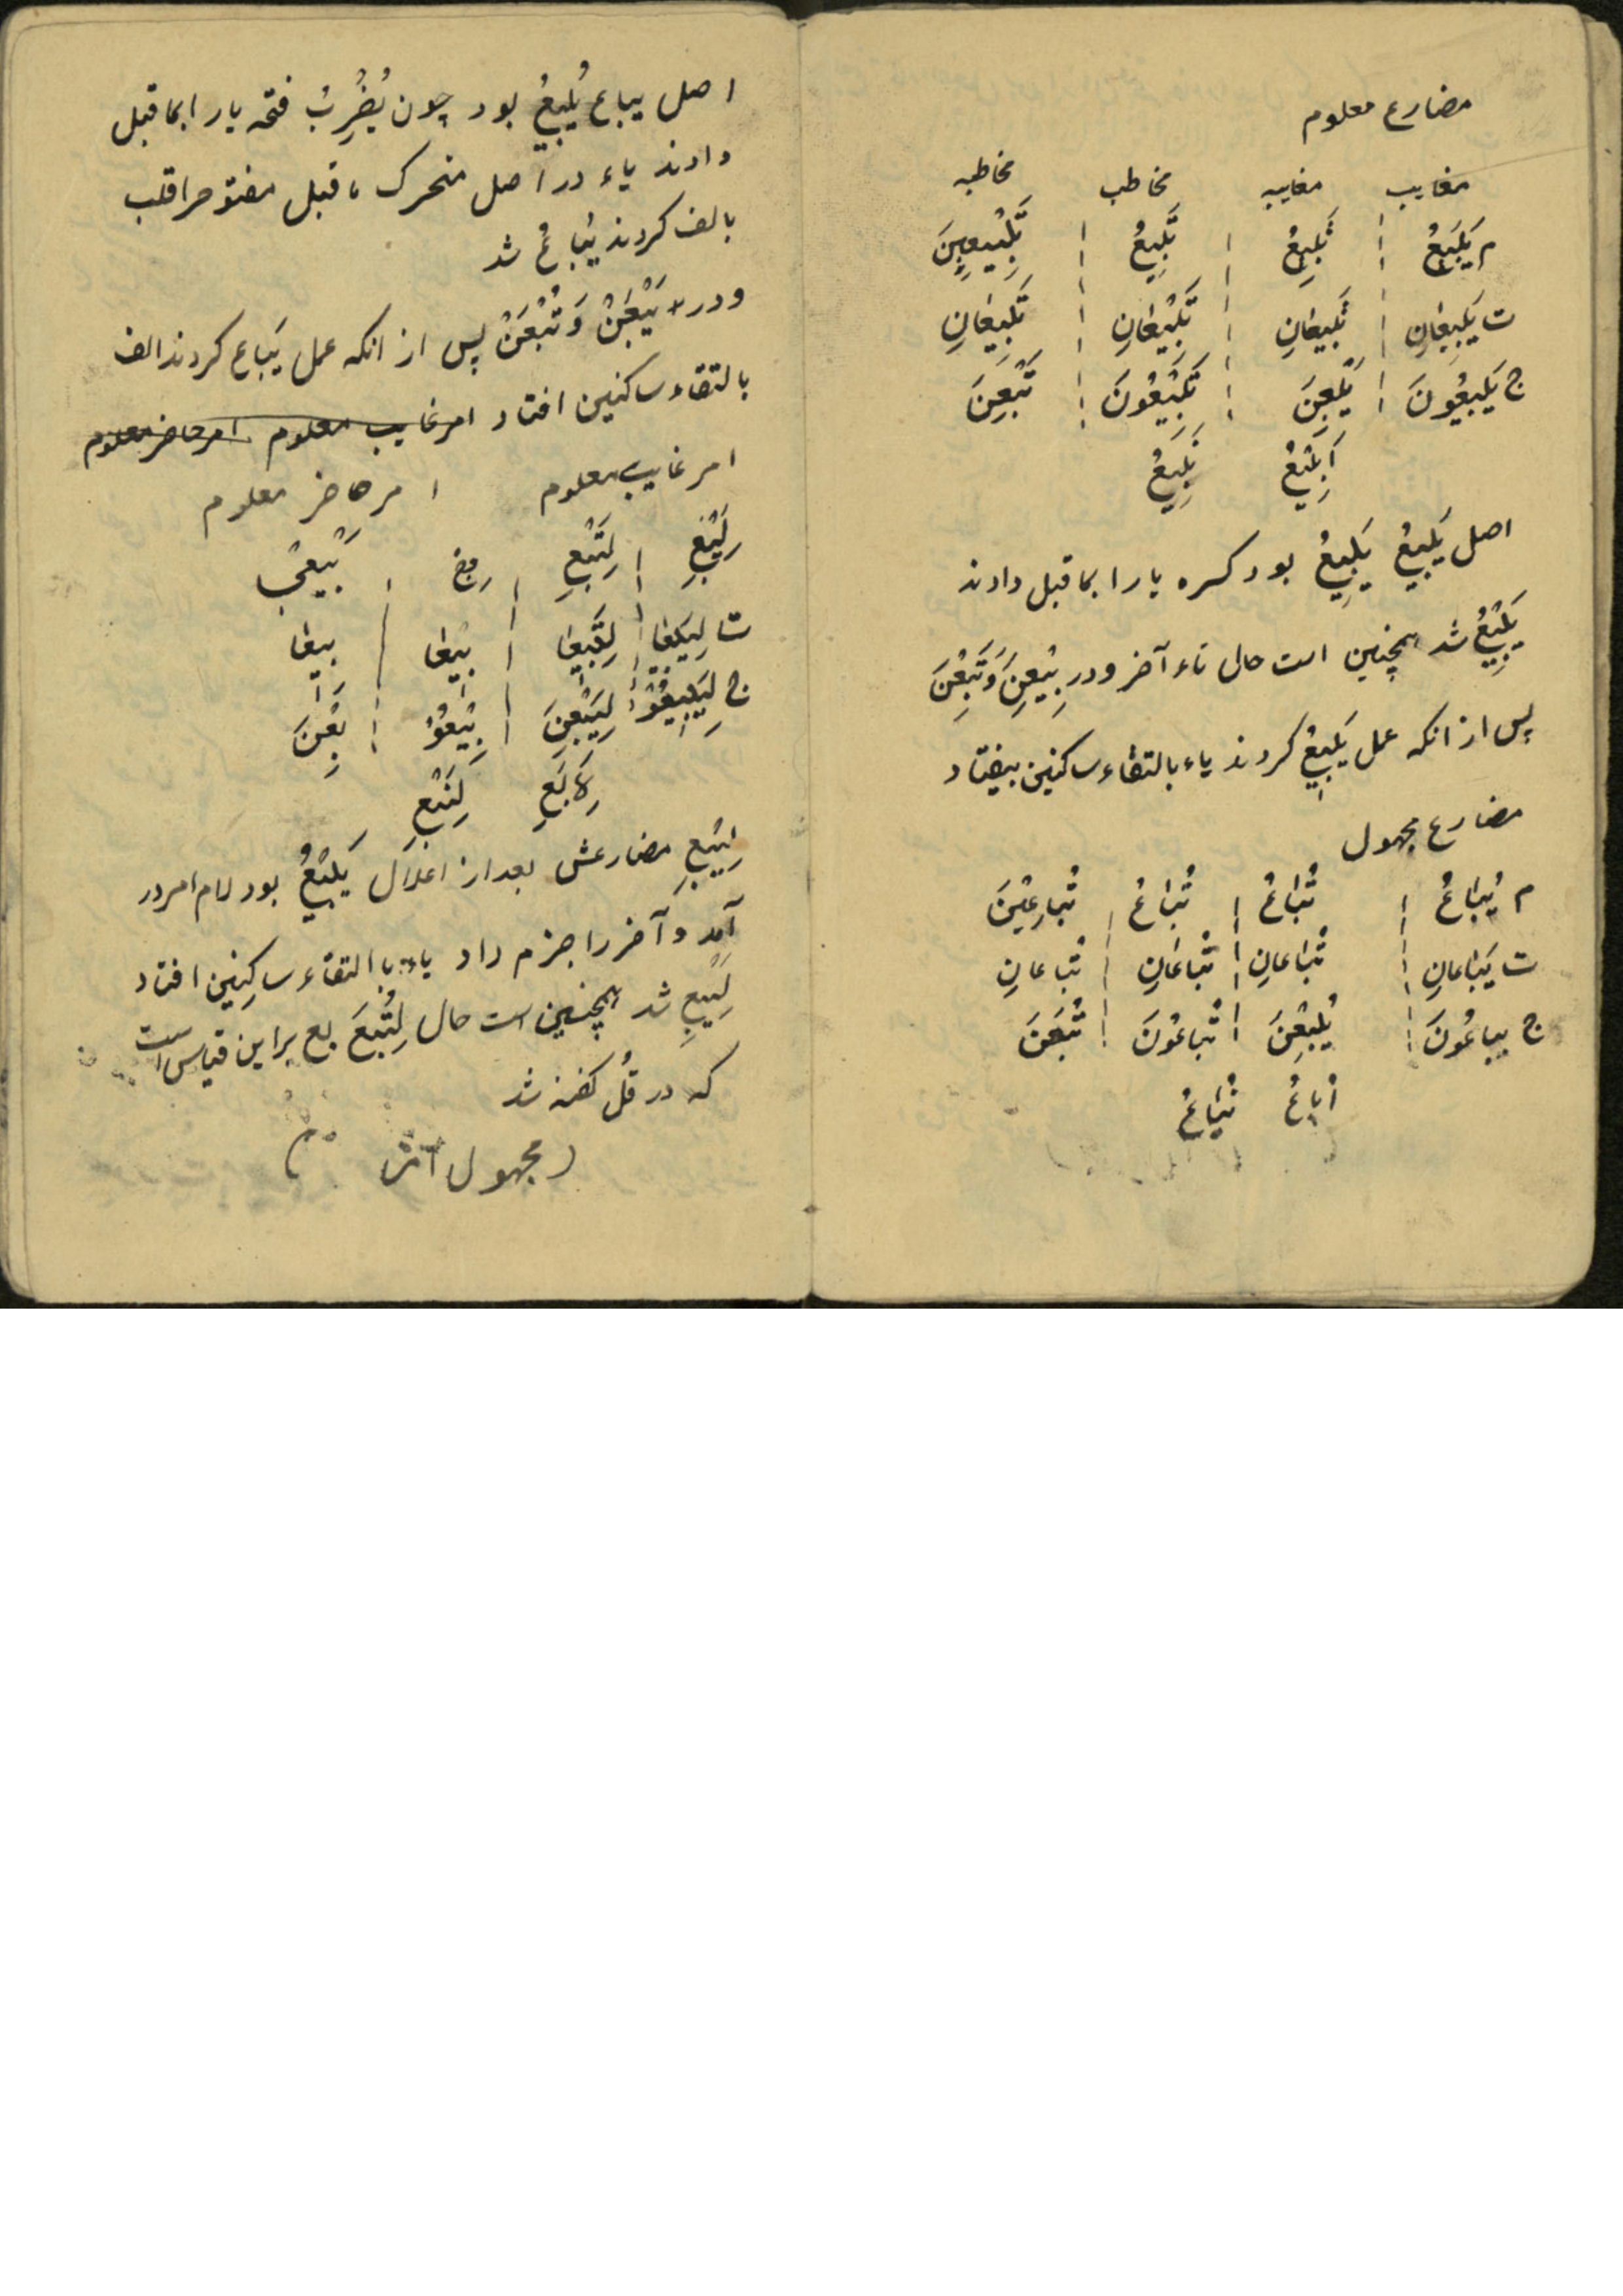 مضارع معلوم
مغایب مغایبه مخاطب مخاطبه
م یَبیعُ تَبیعُ تَبیعُ تَبیعینَ
ت یَبیعانِ تَبیعانِ تَبیعانِ تَبیعانِ
ج یَبیعُونَ یَبِعنَ تَبیعُونَ تَبِعنَ
اَبیعُ نَبیعُ
اصل یَبیعُ یَبیِعُ بود کسره یا را بماقبل دادند
یَبیعُ شد همچنین است حال تاء آخر و در یَبِعنَ وَ تَبِعنَ
پس از انکه عمل یَبیعُ کردند یاء بالتقاء ساکنین بیفتاد
مضارع مجهول
م یُباعُ تُباعُ تُباعُ تُباعینَ
ت یُباعانِ تُباعانِ تُباعانِ تُباعانِ
ج یباعُونَ یُبَعنَ تُباعُونَ تُبَعنَ
اُباعُ نُباعُ
اصل یباع یُبیَعُ بود چون یُضرِبُ فتحه یا را بماقبل
دادند یاء در اصل متحرک ماقبل مفتوح را قلب
بالف کردند یُباعُ شد
و در یُبَعنَ وَ تُبَعنَ پس از انکه عمل یَباع کردند الف
بالتقاء ساکنین افتاد امر غایب معلوم امر حاضر معلوم
امر غایب معلوم امر حاضر معلوم
لِیَبِع لِتَبِع بِع بیعی
ت لِیَبیعا لِتَبیعا بیعا بیعا
ج لِیَبیعُوا لِیَبِعنَ بیعُوا بِعنَ
لِاَبِع لِنَبِع
لِیَبِع مضارعش بعد از اعلال یَبیعُ بود لام امر در
آمد و آخر را جزم داد یاء با التقاء ساکنین افتاد
لِیَبِع شد همچنین است حال لِتَبِع بع براین قیاس است
که در قُل گفته شد
مجهول